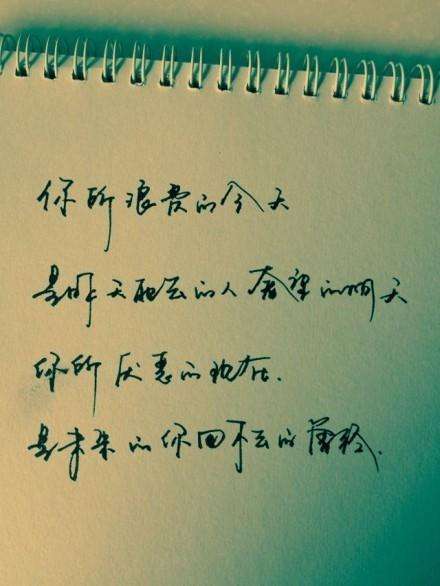 你所浪费的今天
是昨天死去的人奢望的明天
你所厌恶的现在.
是未来的你回不去的曾经.